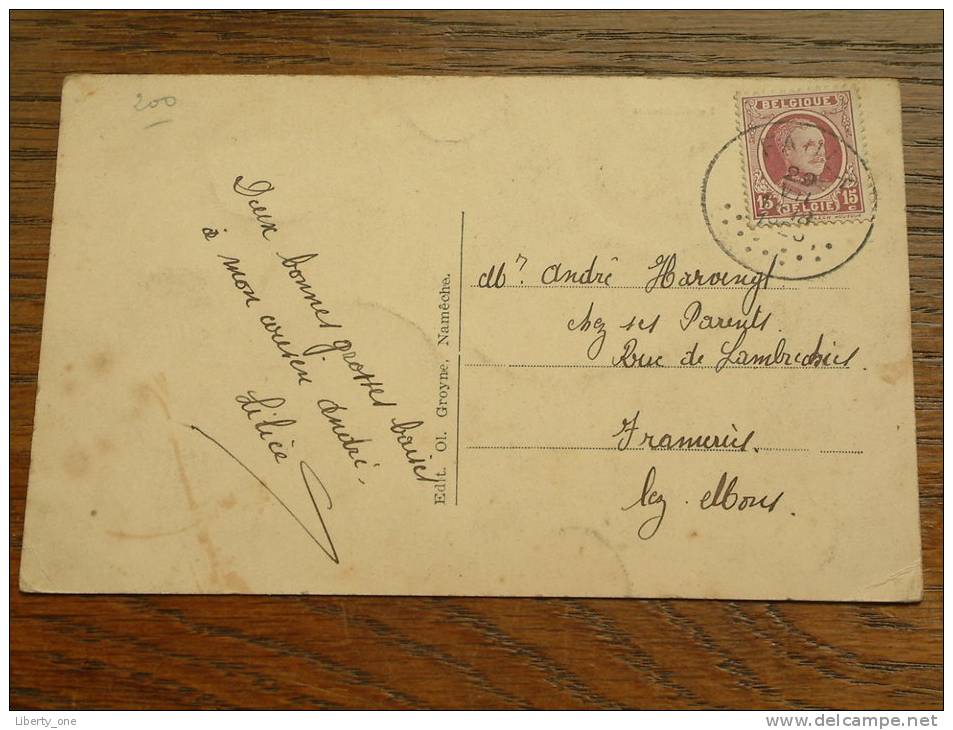 200
Deux bonnes grosses baises
à mon cousin André.
Edit. Ol. Groyne, Namêche.
BELGIQUE
15 BELGIE 15
29
VII
Mr. André Harvengt.
chez ses Parents.
Rue de Lambrechies
Frameries.
lez Mons.
Liberty_one
www.delcampe.net